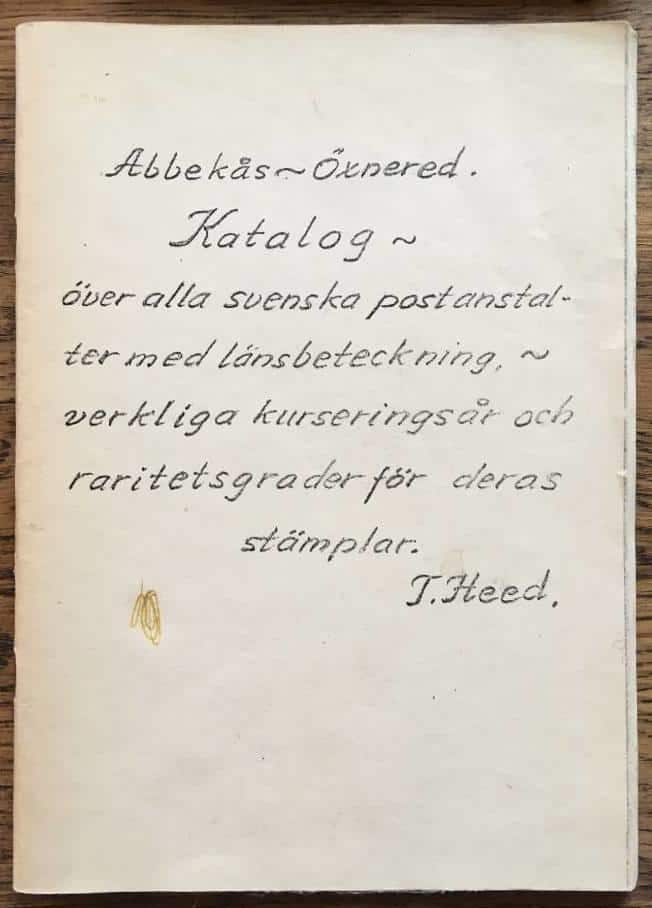 Abbekås ~ Öxnered.
Katalog ~
över alla svenska postanstal-
ter med länsbeteckning, ~
verkliga kurseringsår och
raritetsgrader för deras
stämplar.
T. Heed.